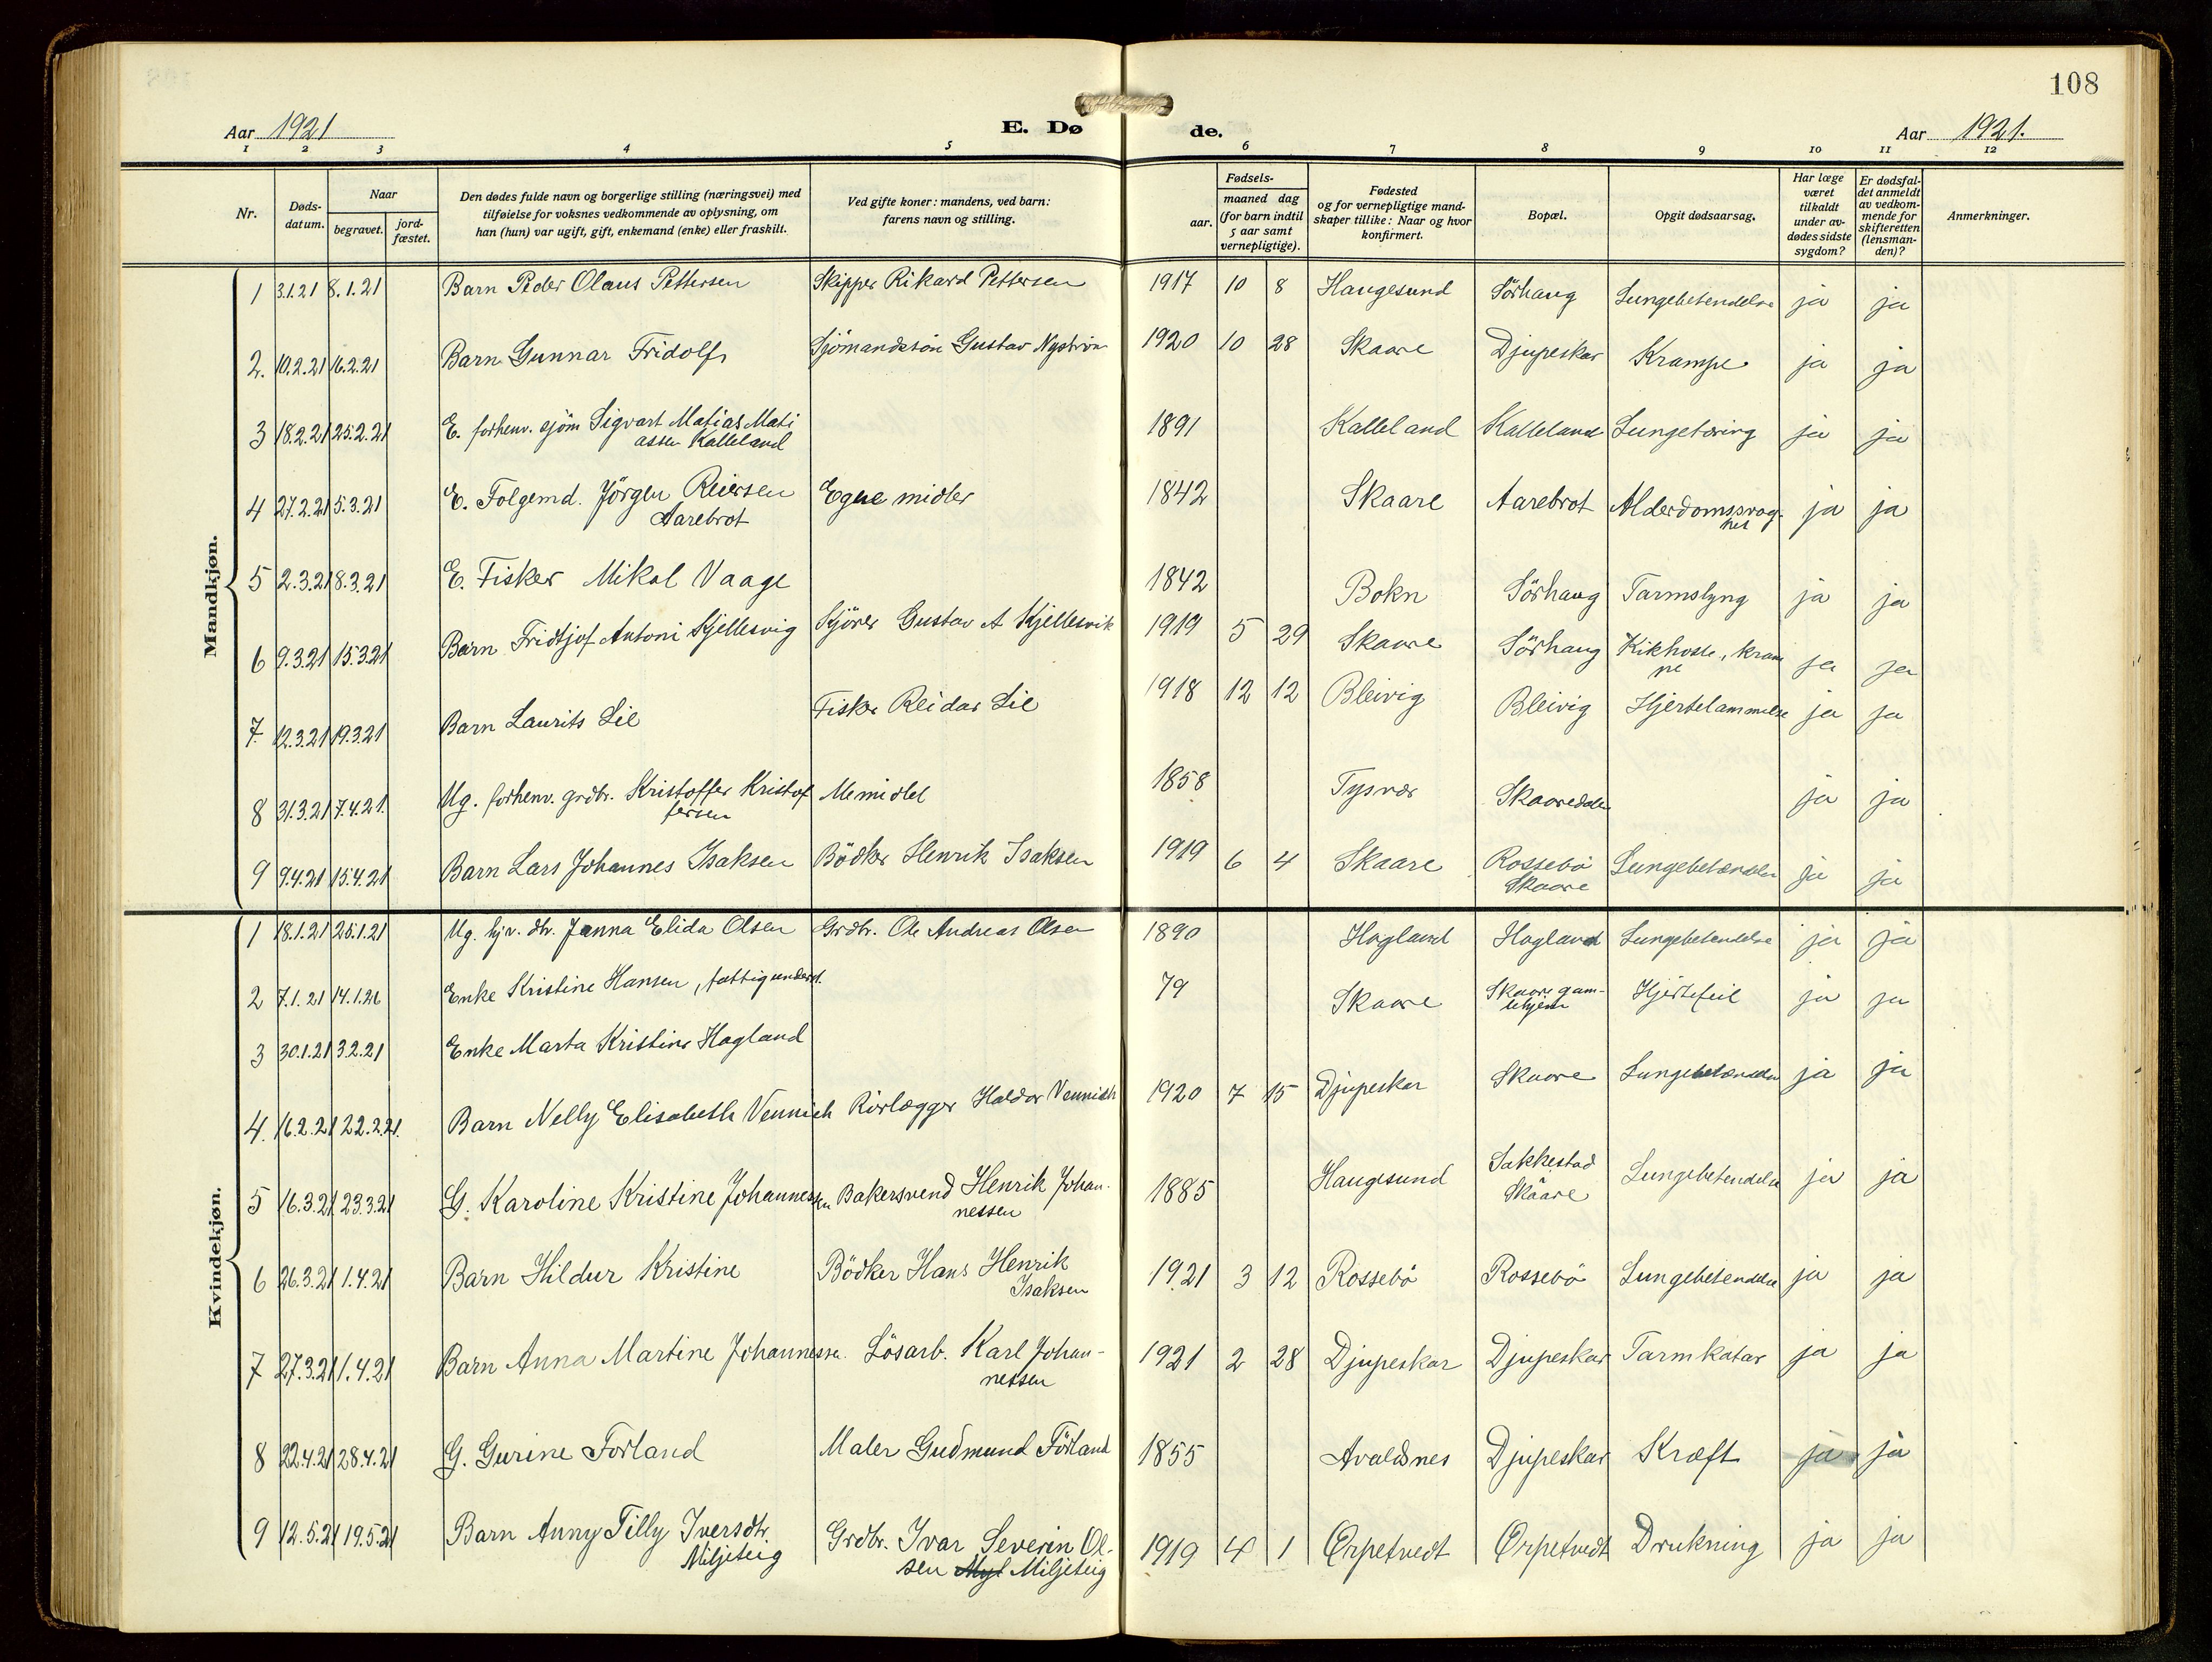 108
Aar 1921
E. Dø
de.
Aar 1921.
1 2 3 4 5 6 7 8 9 10 11 12
Nr.
Døds-
datum.
Naar
begravet.
jord-
fæstet.
Den dødes fulde navn og borgerlige stilling (næringsvei) med
tilføielse for voksnes vedkommende av oplysning, om
han (hun) var ugift, gift, enkemand (enke) eller fraskilt.
Ved gifte koner: mandens, ved barn:
farens navn og stilling.
Fødsels-
aar.
maaned dag
(for barn indtil
5 aar samt
vernepligtige).
Fødested
og for vernepligtige mand-
skaper tillike: Naar og hvor
konfirmert.
Bopæl.
Opgit dødsaarsag.
Har læge
været
tilkaldt
under av-
dødes sidste
sygdom?
Er dødsfal-
det anmeldt
av vedkom-
mende for
skifteretten
(lensman-
den)?
Anmerkninger.
Mandkjøn.
1 3.1.21 8.1.21 Barn Peder Olaus Pettersen Skipper Rikard Pettersen 1917 10 8 Haugesund Sörhaug Lungebetendelse ja ja
2. 10.2.21 16.2.21 Barn Gunnar Fridolf Sjömandsön Gustav Nyström 1920 10 28 Skaare Djupeskar Krampe ja ja
3 18.2.21 25.2.21 E. forhenv. sjöm Sigvart Matias Mati
assen Kalleland 1891 Kalleland Kalleland Lungetæring ja ja
4 27.2.21 5.3.21 E. Folgemd. Jörgen Reiersen Egne midler 1842 Skaare Aarebrot Alderdomssvag- ja ja
Aarebrot het
5 2.3.21 8.3.21 E. Fisker Mikal Vaage 1842 Bokn Sörhaug Tarmslyng ja ja
6 9.3.21 15.3.21 Barn Fridtjof Antoni Kjellesvig Kjörer Gustav A Kjellesvik 1919 5 29 Skaare Sörhaug Kikhoste, kram ja ja
pe
7. 12.3.21 19.3.21 Barn Laurits Lie Fisker Reidar Lie 1918 12 12 Bleivig Bleivig Hjertelammelse ja ja
8 31.3.21 7.4.21. Ug. forhenv. grdbr. Kristoffer Kristof 1858 Tysvær Skaaredalen ja ja
fersen
9 9.4.21 15.4.21 Barn Lars Johannes Isaksen Bödker Henrik Isaksen 1919 6 4 Skaare Rossebö Lungebetændelse ja ja
Skaare
Kvindekjøn.
1 18.1.21 25.1.21 Ug. hjv. dtr. Janna Elida Olsen Grdbr. Ole Andreas Olsen 1890 Hagland Hagland Lungebetendelse ja ja
2 7.1.21 14.1.21 Enke Kristine Hansen, fattigunderst. 79 Skaare Skaare gam- Hjertefeil ja ja
lehjem
3 30.1.21 3.2.21 Enke Marta Kristine Hagland
4. 16.2.21 22.2.21. Barn Nelly Elisabeth Vennich Rörlægger Haldor Vennich 1920 7 15 Djupeskar Skaare Lungebetændelse ja ja
5 16.3.21 23.3.21 G. Karoline Kristine Johannessen Bakersvend Henrik Johan- 1885 Haugesund Sakkestad Lungebetendelse ja ja
nessen Skaare
6 26.3.21 1.4.21 Barn Hildur Kristine Bödker Hans Henrik 1921 3 12 Rossebö Rossebö Lungebetendelse ja ja
Isaksen
7 27.3.21 1.4.21 Barn Anna Martine Johannessen. Lösarb. Karl Johan- 1921 2 28 Djupeskar Djupeskar Tarmkatar ja ja
nessen
8 22.4.21 28.4.21 G. Gurine Forland Maler Gudmund Förland 1855 Avaldsnes Djupeskar Kræft ja ja
9 12.5.21 19.5.21 Barn Anny Tilly Iversdtr. Grdbr. Ivar Severin Ol- 1919 4 1 Ørpetvedt Ørpetvedt Drukning ja ja
Miljeteig sen Miljeteig